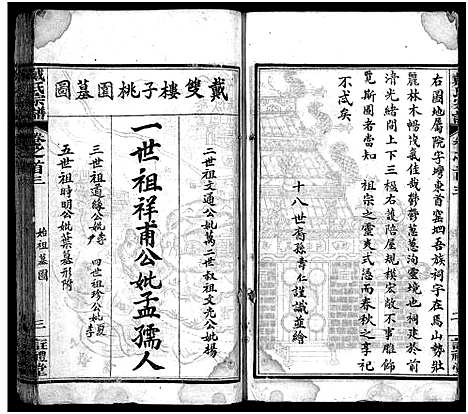 右圖地屬院字塆東首窑㘭吾族祠宇在馬山勢壯
麗林木暢茂氣佳哉鬱鬱葱葱洵靈境也祠建於前
清光緒間上下三極右護陪屋規模宏敞不事雕飾
覽斯圖者當知 祖宗之靈爽式憑而春秋之享祀
不忒矣
十八世裔孫壽仁謹識並繪
二
註禮堂
戴雙樓子桃園墓圖
二世祖文通公妣萬二世叔祖文光公妣楊
一世祖祥甫公妣孟孺人
三世祖道緣公妣李
四世祖珍公妣夏李
五世祖時明公妣葉墓形附
戴氏宗譜
卷之首三
始祖墓圖
三
註禮堂